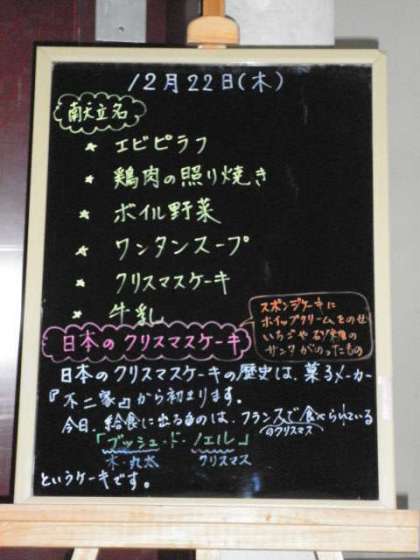 12月22日(木)
献立名
★ エビピラフ
★ 鶏肉の照り焼き
★ ボイル野菜
★ ワンタンスープ
★ クリスマスケーキ
★ 牛乳
日本のクリスマスケーキ
スポンジケーキに
ホイップクリームをのせ
いちごや砂糖の
サンタがのったもの
日本のクリスマスケーキの歴史は、菓子メーカー
『不二家』から初まります。
今日、給食に出るのは、フランスで食べられている
のクリスマス
「ブッシュ・ド・ノエル」
木・丸太 クリスマス
というケーキです。